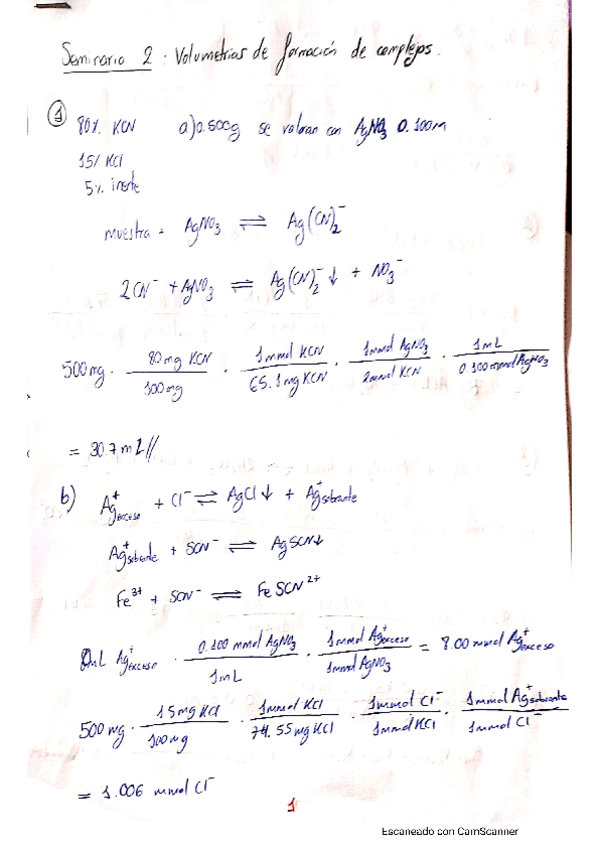 Seminario 2 : Volumetrias de formación de complejos.
① 80% KCN a) 0.500g se valoran con AgNO3 0.100M
15% KCl
5% inerte
muestra + AgNO3 ⇌ Ag(CN)2^-
2CN^- + AgNO3 ⇌ Ag(CN)2^- ↓ + NO3^-
500mg · 80mg KCN / 100mg · 1mmol KCN / 65.1mg KCN · 1mmol AgNO3 / 2mmol KCN · 1mL / 0.100mmol AgNO3
= 30.7 mL //
b) Ag^+ exceso + Cl^- ⇌ AgCl ↓ + Ag^+ sobrante
Ag^+ sobrante + SCN^- ⇌ AgSCN ↓
Fe^3+ + SCN^- ⇌ FeSCN^2+
mL Ag^+ exceso · 0.100 mmol AgNO3 / 1mL · 1mmol Ag^+ exceso / 1mmol AgNO3 = 8.00 mmol Ag^+ exceso
500mg · 15mg KCl / 100mg · 1mmol KCl / 74.55mg KCl · 1mmol Cl^- / 1mmol KCl · 1mmol Ag^+ sobrante / 1mmol Cl^-
= 1.006 mmol Cl^-
1
Escaneado con CamScanner